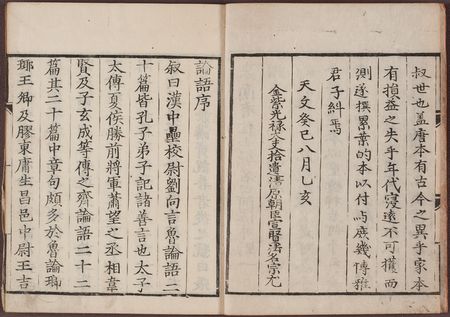 叔世也蓋唐本有古今之異乎家本
有損益之失乎年代寖遠不可獲而
測遂撰累葉的本以付与庶幾博雅
君子糾焉
天文癸巳八月乙亥
金紫光祿大夫拾遺清原朝臣宣賢法名宗尤
論語序
叙曰漢中壘校尉劉向言魯論語二
十篇皆孔子弟子記諸善言也太子
太傅夏侯勝前將軍蕭望之丞相韋
賢及子玄成等傳之齊論語二十二
篇其二十篇中章句頗多於魯論瑯
瑘王卿及膠東庸生昌邑中尉王吉